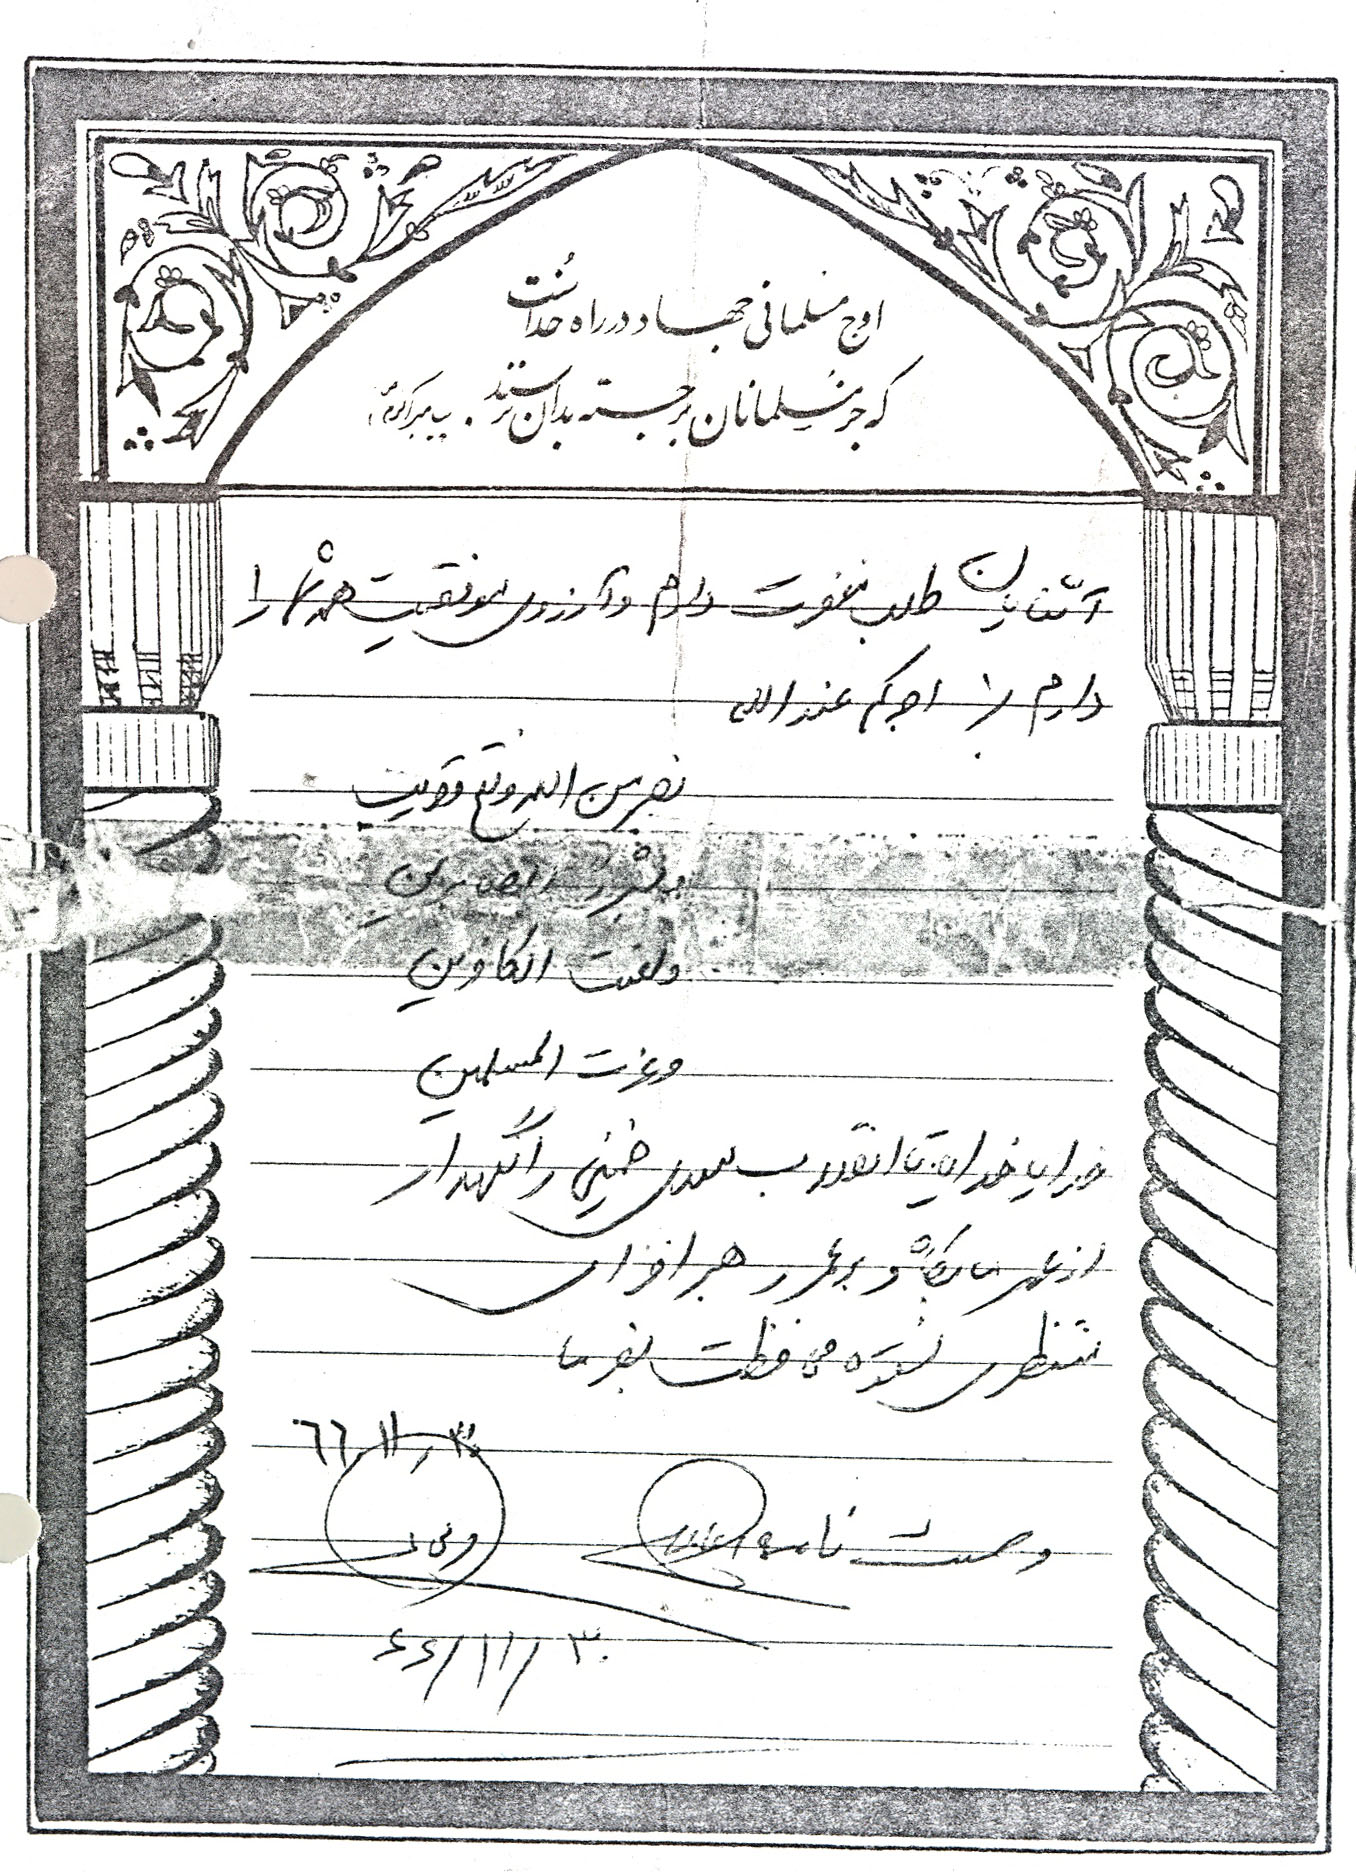 اوج مسلمانی جهاد در راه خداست
که جز مسلمانان برجسته بدان نرسند . پیامبر اکرم (ص)
آشنایان طلب مغفرت دارم و آرزوی موفقیت همه شما را
دارم با اجرکم عند الله
نصر من الله و فتح قریب
و بشر الصابرین
و لعنت الکافرین
و عزت المسلمین
خدایا خدایا تا انقلاب مهدی خمینی را نگهدار
از عمر ما بکاه و بر عمر رهبر افزای
منتظری نستوه محافظت بفرما
۶۶/۱۱/۳۰
وصیت نامه
۶۶/۱۱/۳۰